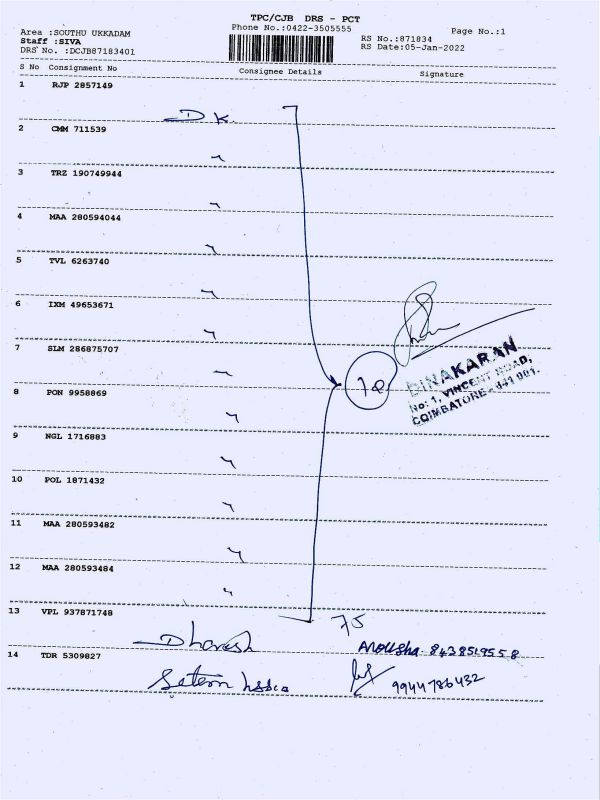 TPC/CJB DRS - PCT
Phone No.:0422-3505555
Page No.:1
Area :SOUTHU UKKADAM
Staff :SIVA
DRS No. :DCJB87183401
RS No.:871834
RS Date:05-Jan-2022
S No Consignment No Consignee Details Signature
1 RJP 2857149
DK.
2 CMM 711539
3 TRZ 190749944
4 MAA 280594044
5 TVL 6263740
6 IXM 49653671
7 SLM 286875707
DINAKARAN
No: 1, VINCENT ROAD,
COIMBATORE - 641 001.
8 PON 9958869
9 NGL 1716883
10 POL 1871432
11 MAA 280593482
12 MAA 280593484
13 VPL 937871748
75
Dharesh
14 TDR 5309827
9944786432